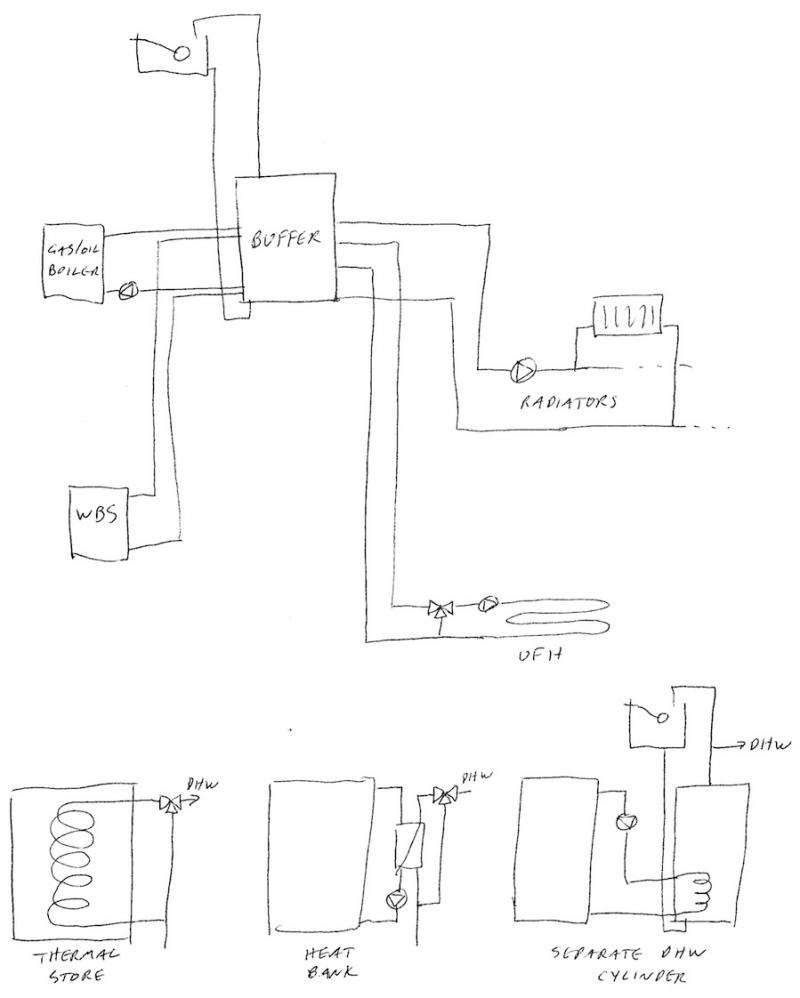 GAS/OIL
BOILER
BUFFER
RADIATORS
WBS
UFH
DHW
DHW
DHW
THERMAL
STORE
HEAT
BANK
SEPARATE DHW
CYLINDER